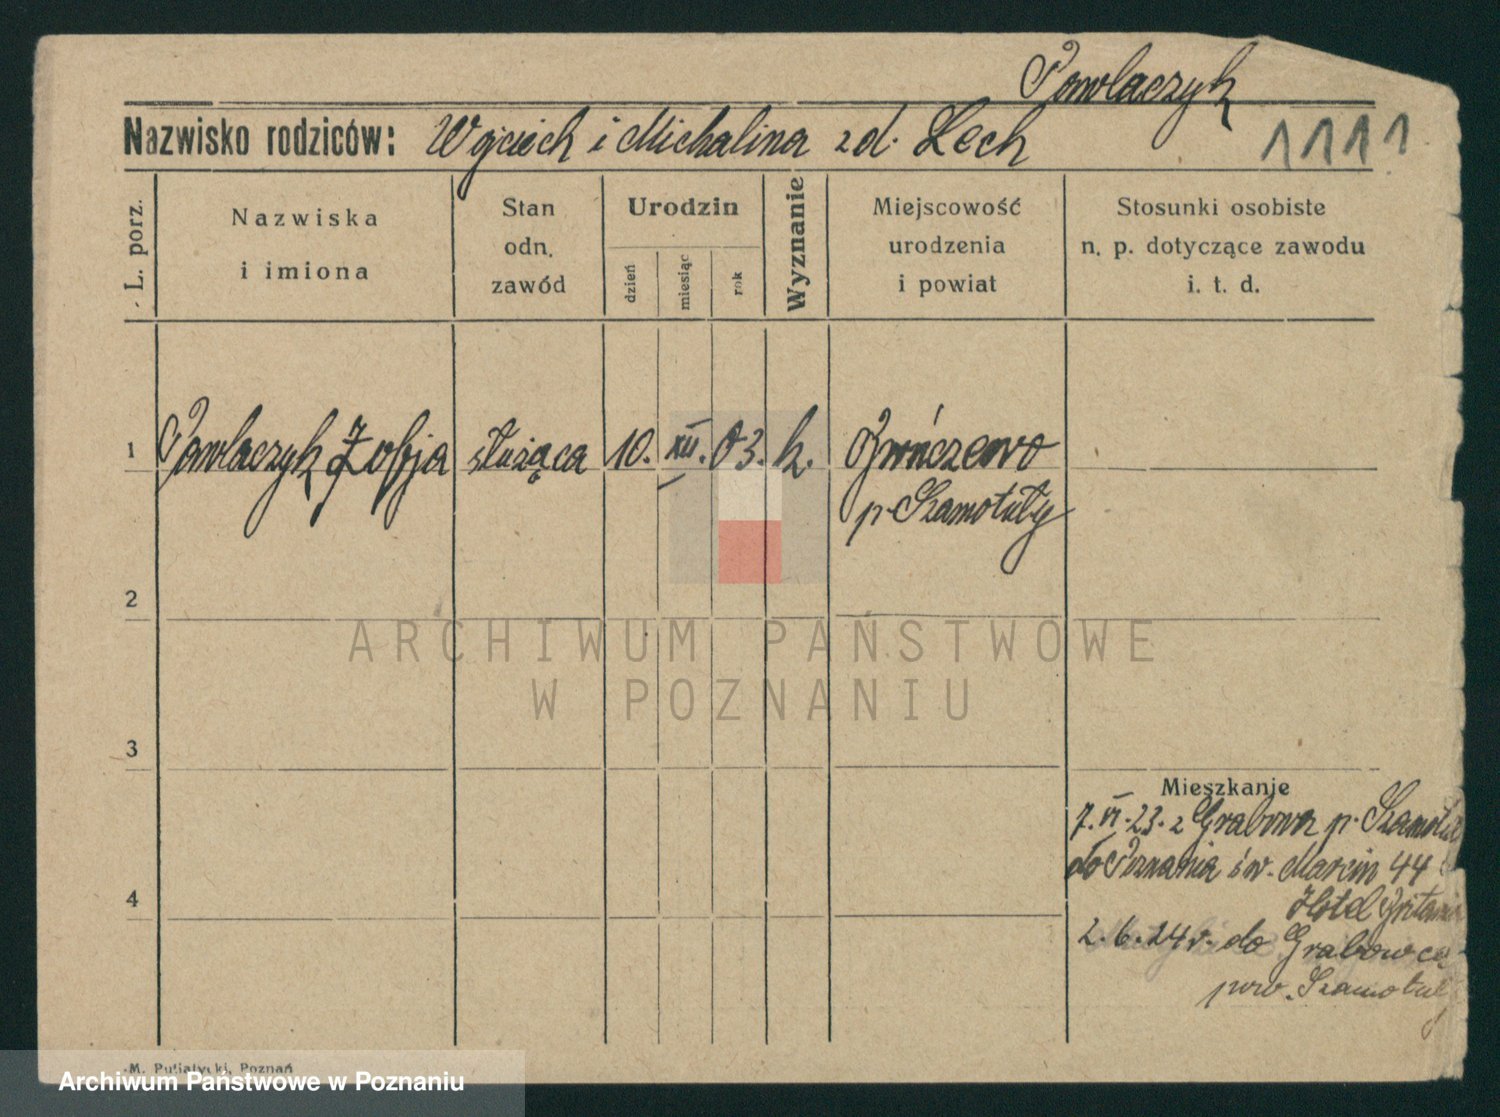 Pawlaczyk
Nazwisko rodziców: Wojciech i Michalina zd. Lech
1111
L. porz.
Nazwiska
i imiona
Stan
odn.
zawód
Urodzin
dzień
miesiąc
rok
Wyznanie
Miejscowość
urodzenia
i powiat
Stosunki osobiste
n. p. dotyczące zawodu
i. t. d.
1 Pawlaczyk Zofja służąca 10. XII. 03. k.
p. Szamotuły
2
3
4
Mieszkanie
7. VI. 23. z p. Szamotuł
do Poznania św. Marcin 44
Hotel
2. 6. 24 r. do
pow. Szamotuły
M. Putiatycki, Poznań
ARCHIWUM PAŃSTWOWE
W POZNANIU
Archiwum Państwowe w Poznaniu